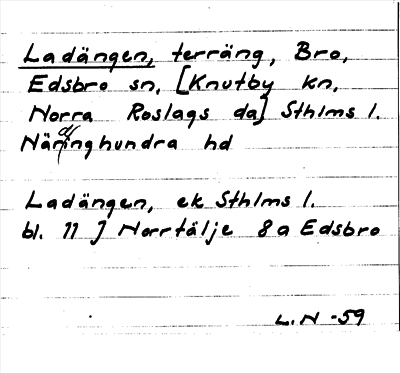 Ladängen, terräng, Bro,
Edsbro sn, [Knutby kn,
Norra Roslags da] Sthlms l.
Närdinghundra hd
Ladängen, ek Sthlms l.
bl. 11 J Norrtälje 8a Edsbro
L.N -59